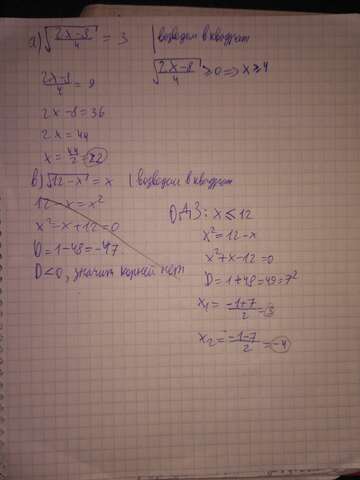 а) √(2x-8)/4 = 3 | возводим в квадрат
√(2x-8)/4 ⩾ 0 => x ⩾ 4
(2x-8)/4 = 9
2x-8=36
2x=44
x = 44/2 = 22
в) √12-x = x | возводим в квадрат
12-x=x²
x²-x+12=0
D=1-48=-47
D<0, значит корней нет
ОДЗ: x ⩽ 12
x²=12-x
x²+x-12=0
D=1+48=49=7²
x₁ = (-1+7)/2 = 3
x₂ = (-1-7)/2 = -4